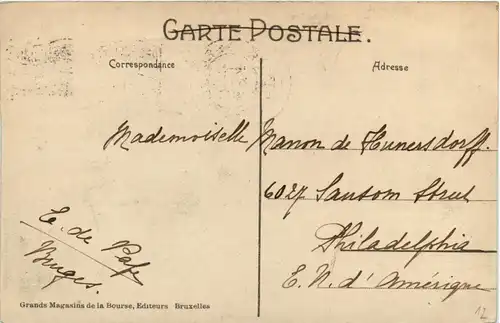 CARTE POSTALE.
Correspondance
Adresse
Mademoiselle Manon de Hunersdorff.
6027 Sansom Street
Philadelphia
E. N. d'Amérique
E. de
Bruges.
Grands Magasins de la Bourse, Editeurs Bruxelles
12